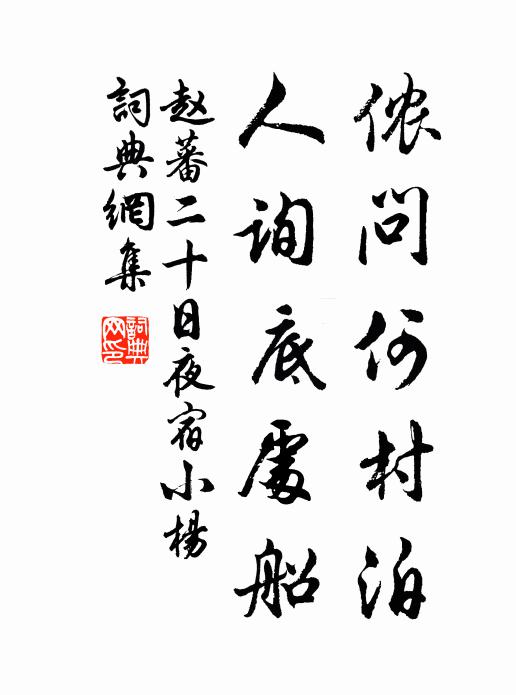 侬问何村泊
人询底處船
赵蕃二十日夜宿小楊
詞典網集
詞典网印